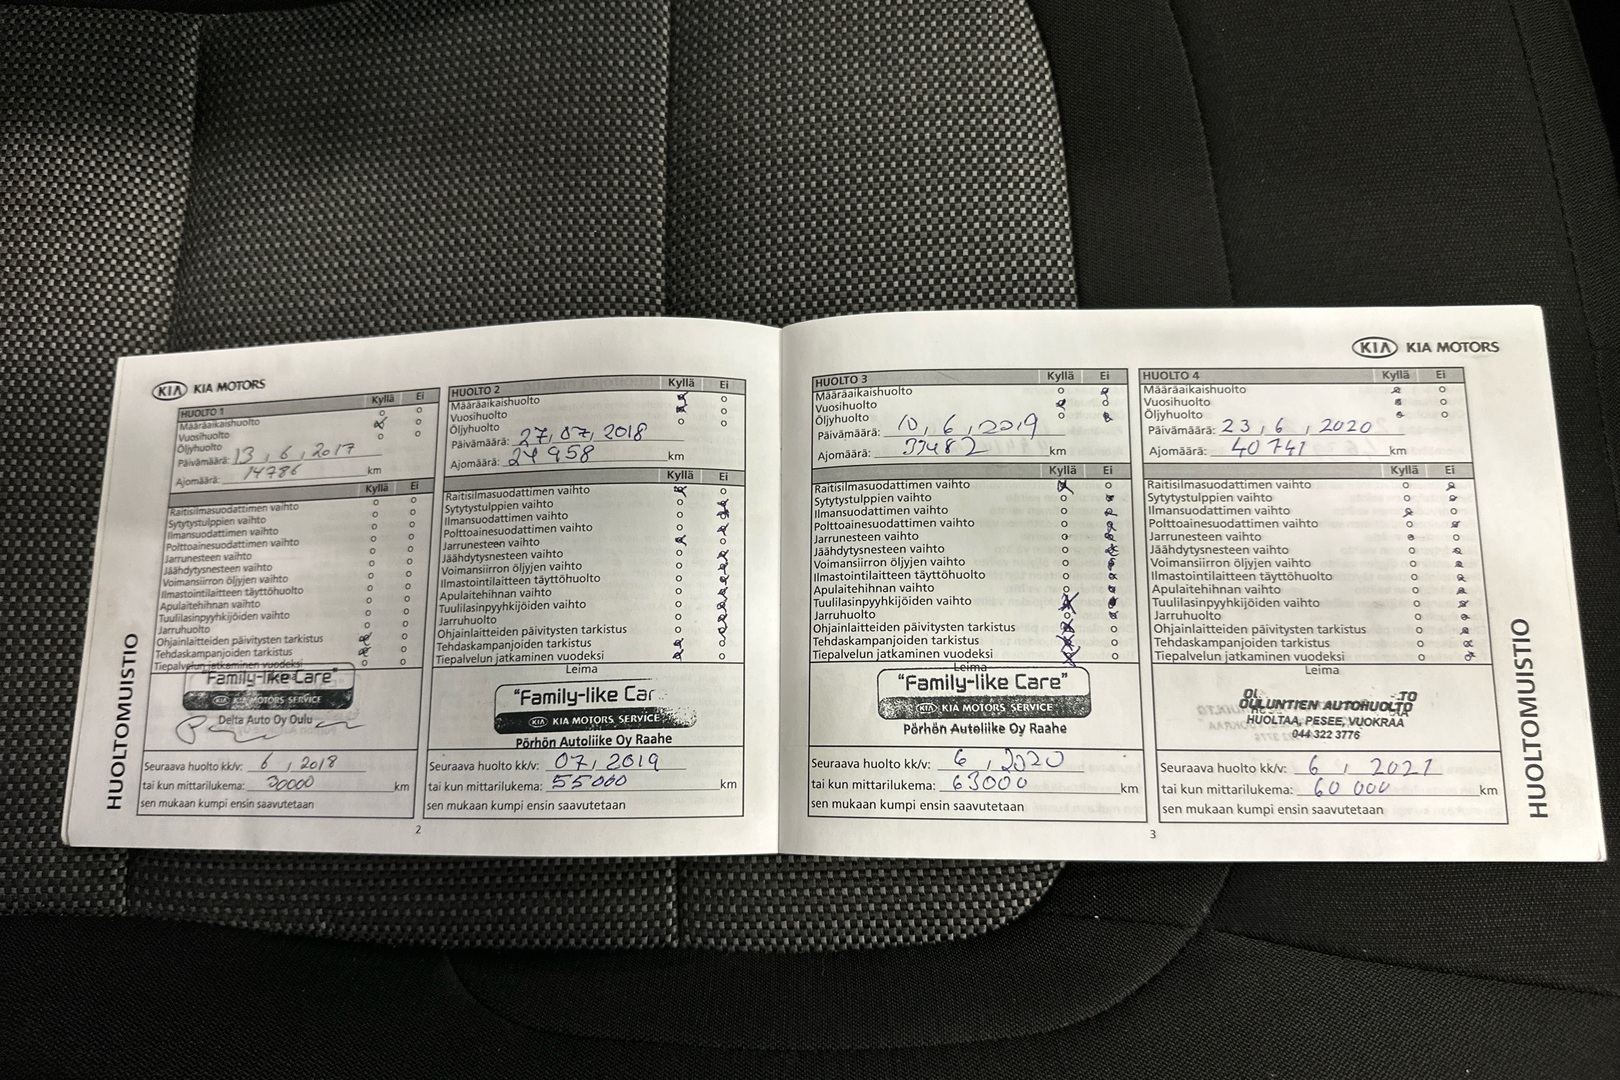 HUOLTOMUISTIO
KIA KIA MOTORS
HUOLTO 1 Kyllä Ei
Määräaikaishuolto
Vuosihuolto
Öljyhuolto
Päivämäärä: 13, 6, 2017
Ajomäärä: 14786 km
Kyllä Ei
Raitisilmasuodattimen vaihto
Sytytystulppien vaihto
Ilmansuodattimen vaihto
Polttoainesuodattimen vaihto
Jarrunesteen vaihto
Jäähdytysnesteen vaihto
Voimansiirron öljyjen vaihto
Ilmastointilaitteen täyttöhuolto
Apulaitehihnan vaihto
Tuulilasinpyyhkijöiden vaihto
Jarruhuolto
Ohjainlaitteiden päivitysten tarkistus
Tehdaskampanjoiden tarkistus
Tiepalvelun jatkaminen vuodeksi
"Family-like Care"
KIA KIA MOTORS SERVICE
Delta Auto Oy Oulu
Seuraava huolto kk/v: 6, 2018
tai kun mittarilukema: 30000 km
sen mukaan kumpi ensin saavutetaan
HUOLTO 2 Kyllä Ei
Määräaikaishuolto
Vuosihuolto
Öljyhuolto
Päivämäärä: 27, 07, 2018
Ajomäärä: 24958 km
Kyllä Ei
Raitisilmasuodattimen vaihto
Sytytystulppien vaihto
Ilmansuodattimen vaihto
Polttoainesuodattimen vaihto
Jarrunesteen vaihto
Jäähdytysnesteen vaihto
Voimansiirron öljyjen vaihto
Ilmastointilaitteen täyttöhuolto
Apulaitehihnan vaihto
Tuulilasinpyyhkijöiden vaihto
Jarruhuolto
Ohjainlaitteiden päivitysten tarkistus
Tehdaskampanjoiden tarkistus
Tiepalvelun jatkaminen vuodeksi
Leima
"Family-like Car
KIA KIA MOTORS SERVICE
Pörhön Autoliike Oy Raahe
Seuraava huolto kk/v: 07, 2019
tai kun mittarilukema: 55000 km
sen mukaan kumpi ensin saavutetaan
2
HUOLTO 3 Kyllä Ei
Määräaikaishuolto
Vuosihuolto
Öljyhuolto
Päivämäärä: 10, 6, 2019
Ajomäärä: 33482 km
Kyllä Ei
Raitisilmasuodattimen vaihto
Sytytystulppien vaihto
Ilmansuodattimen vaihto
Polttoainesuodattimen vaihto
Jarrunesteen vaihto
Jäähdytysnesteen vaihto
Voimansiirron öljyjen vaihto
Ilmastointilaitteen täyttöhuolto
Apulaitehihnan vaihto
Tuulilasinpyyhkijöiden vaihto
Jarruhuolto
Ohjainlaitteiden päivitysten tarkistus
Tehdaskampanjoiden tarkistus
Tiepalvelun jatkaminen vuodeksi
Leima
"Family-like Care"
KIA KIA MOTORS SERVICE
Pörhön Autoliike Oy Raahe
Seuraava huolto kk/v: 6, 2020
tai kun mittarilukema: 63000 km
sen mukaan kumpi ensin saavutetaan
KIA KIA MOTORS
HUOLTO 4 Kyllä Ei
Määräaikaishuolto
Vuosihuolto
Öljyhuolto
Päivämäärä: 23, 6, 2020
Ajomäärä: 40741 km
Kyllä Ei
Raitisilmasuodattimen vaihto
Sytytystulppien vaihto
Ilmansuodattimen vaihto
Polttoainesuodattimen vaihto
Jarrunesteen vaihto
Jäähdytysnesteen vaihto
Voimansiirron öljyjen vaihto
Ilmastointilaitteen täyttöhuolto
Apulaitehihnan vaihto
Tuulilasinpyyhkijöiden vaihto
Jarruhuolto
Ohjainlaitteiden päivitysten tarkistus
Tehdaskampanjoiden tarkistus
Tiepalvelun jatkaminen vuodeksi
Leima
OULUNTIEN AUTOHUOLTO
HUOLTAA, PESEE, VUOKRAA
044 322 3776
Seuraava huolto kk/v: 6, 2021
tai kun mittarilukema: 60 000 km
sen mukaan kumpi ensin saavutetaan
3
HUOLTOMUISTIO